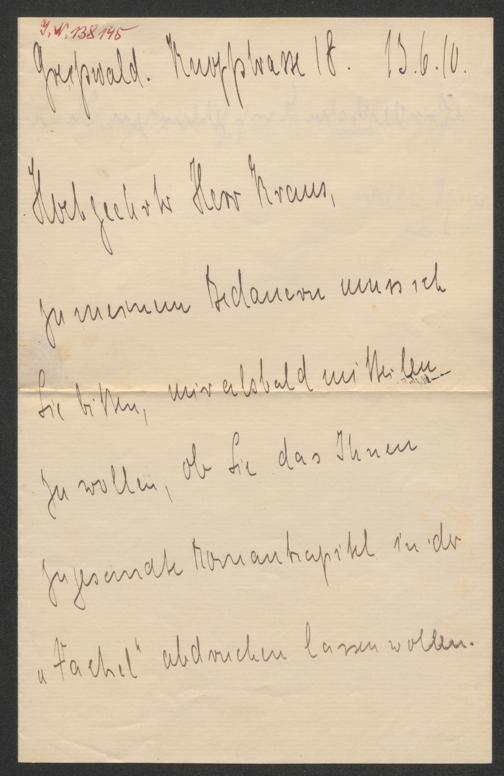 I.N. 138145
Greifswald. Knopfstrasse 18. 13.6.10.
Hochgeehrter Herr Kraus,
zu meinem Bedauern muss ich
Sie bitten, mir alsbald mitteilen
zu wollen, ob Sie das Ihnen
zugesandte Romankapitel in der
„Fackel“ abdrucken lassen wollen.